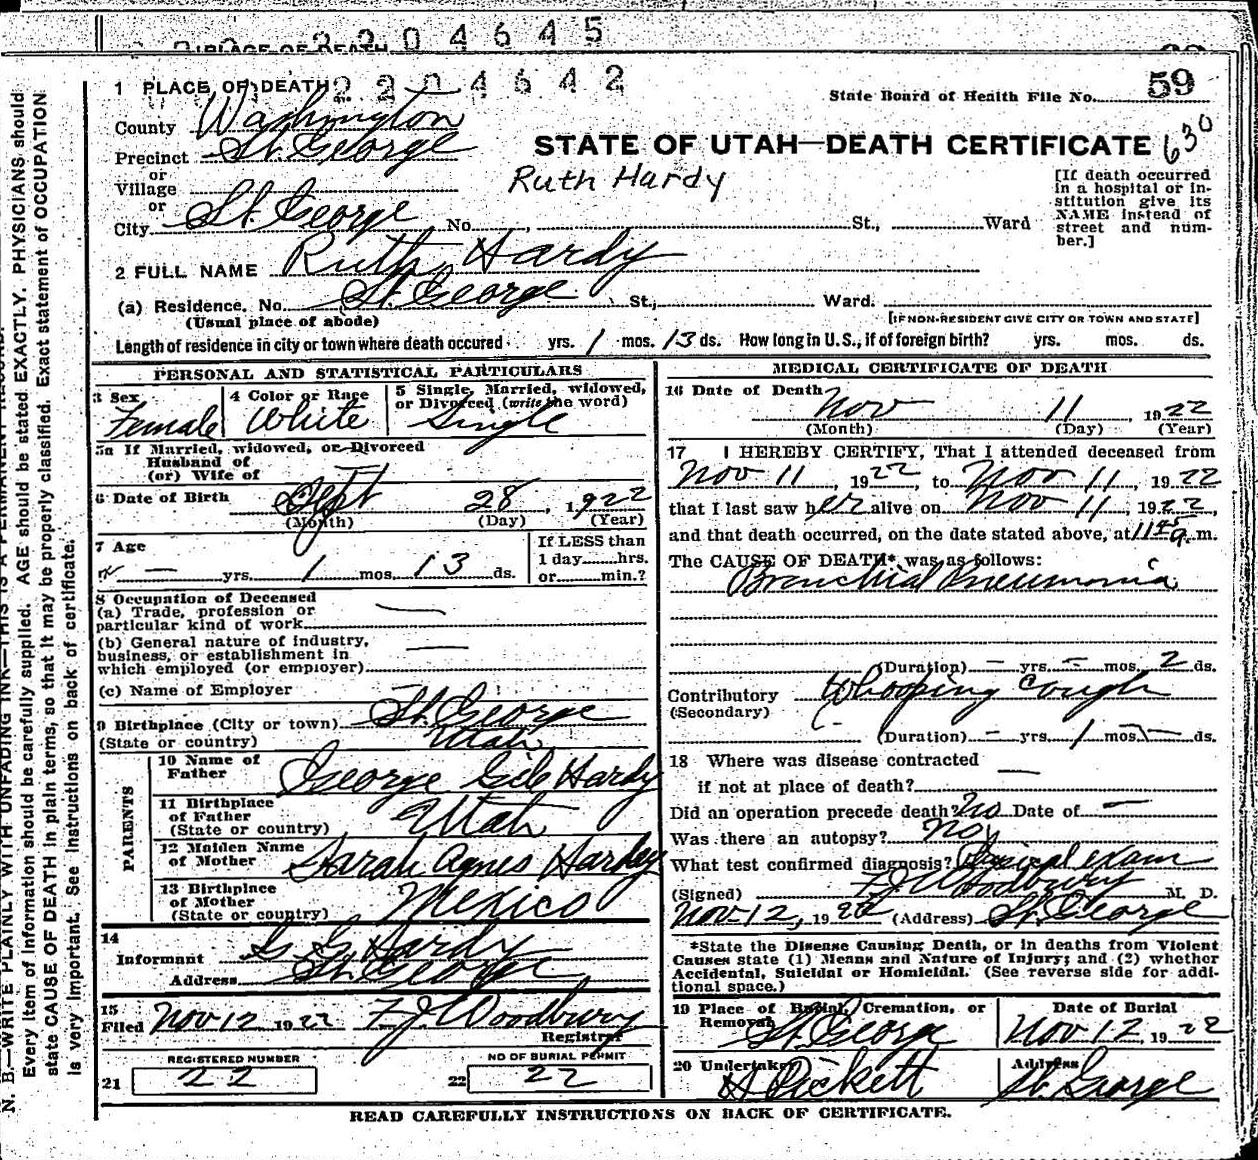 2204645
PLACE OF DEATH
2204642
59
1 PLACE OF DEATH
State Board of Health File No.
County Washington
Precinct St. George
STATE OF UTAH—DEATH CERTIFICATE 630
or
Village
Ruth Hardy
or
City St. George No. St., Ward
[If death occurred in a hospital or institution give its NAME instead of street and number.]
2 FULL NAME Ruth Hardy
(a) Residence, No. St. George St., Ward.
(Usual place of abode)
[IF NON-RESIDENT GIVE CITY OR TOWN AND STATE]
Length of residence in city or town where death occured yrs. 1 mos. 13 ds. How long in U. S., if of foreign birth? yrs. mos. ds.
PERSONAL AND STATISTICAL PARTICULARS
3 Sex
Female
4 Color or Race
White
5 Single, Married, widowed, or Divorced (write the word)
Single
5a If Married, widowed, or Divorced
Husband of
(or) Wife of
6 Date of Birth Sept 28, 1922
(Month) (Day) (Year)
7 Age
— yrs. 1 mos. 13 ds.
If LESS than
1 day hrs.
or min.?
8 Occupation of Deceased
(a) Trade, profession or
particular kind of work —
(b) General nature of industry,
business, or establishment in
which employed (or employer) —
(c) Name of Employer
9 Birthplace (City or town) St. George
(State or country) Utah
PARENTS
10 Name of
Father George Hardy
11 Birthplace
of Father
(State or country) Utah
12 Maiden Name
of Mother Sarah Agnes
13 Birthplace
of Mother
(State or country) Mexico
14
Informant G G Hardy
Address St. George
15
Filed Nov 12 1922 F. J. Woodbury
Registrar
REGISTERED NUMBER
21 22
NO OF BURIAL PERMIT
22 22
MEDICAL CERTIFICATE OF DEATH
16 Date of Death
Nov 11, 1922
(Month) (Day) (Year)
17 I HEREBY CERTIFY, That I attended deceased from
Nov 11, 1922, to Nov 11, 1922
that I last saw her alive on Nov 11, 1922,
and that death occurred, on the date stated above, at 11 45 a. m.
The CAUSE OF DEATH* was as follows:
Bronchial Pneumonia
(Duration) — yrs. — mos. 2 ds.
Contributory Whooping Cough
(Secondary)
(Duration) — yrs. 1 mos. — ds.
18 Where was disease contracted
if not at place of death? —
Did an operation precede death? No Date of —
Was there an autopsy? No
What test confirmed diagnosis? exam
(Signed) F. J. Woodbury M. D.
Nov-12, 1922 (Address) St. George
*State the Disease Causing Death, or in deaths from Violent
Causes state (1) Means and Nature of Injury; and (2) whether
Accidental, Suicidal or Homicidal. (See reverse side for additional space.)
19 Place of Burial, Cremation, or
Removal St. George
Date of Burial
Nov 12, 1922
20 Undertaker
H Pickett
Address
St. George
READ CAREFULLY INSTRUCTIONS ON BACK OF CERTIFICATE.
N. B.—WRITE PLAINLY WITH UNFADING INK—THIS IS A PERMANENT
Every item of information should be carefully supplied. AGE should be stated EXACTLY. PHYSICIANS should
state CAUSE OF DEATH in plain terms, so that it may be properly classified. Exact statement of OCCUPATION
is very important. See instructions on back of certificate.